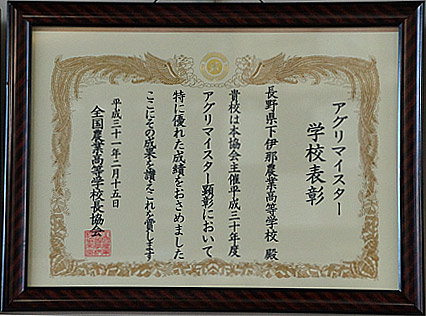 アグリマイスター
学校表彰
長野県下伊那農業高等学校 殿
貴校は本協会主催平成三十年度
アグリマイスター顕彰において
特に優れた成績をおさめました
ここにその成果を讃えこれを賞します
平成三十一年二月十五日
全国農業高等学校長協会